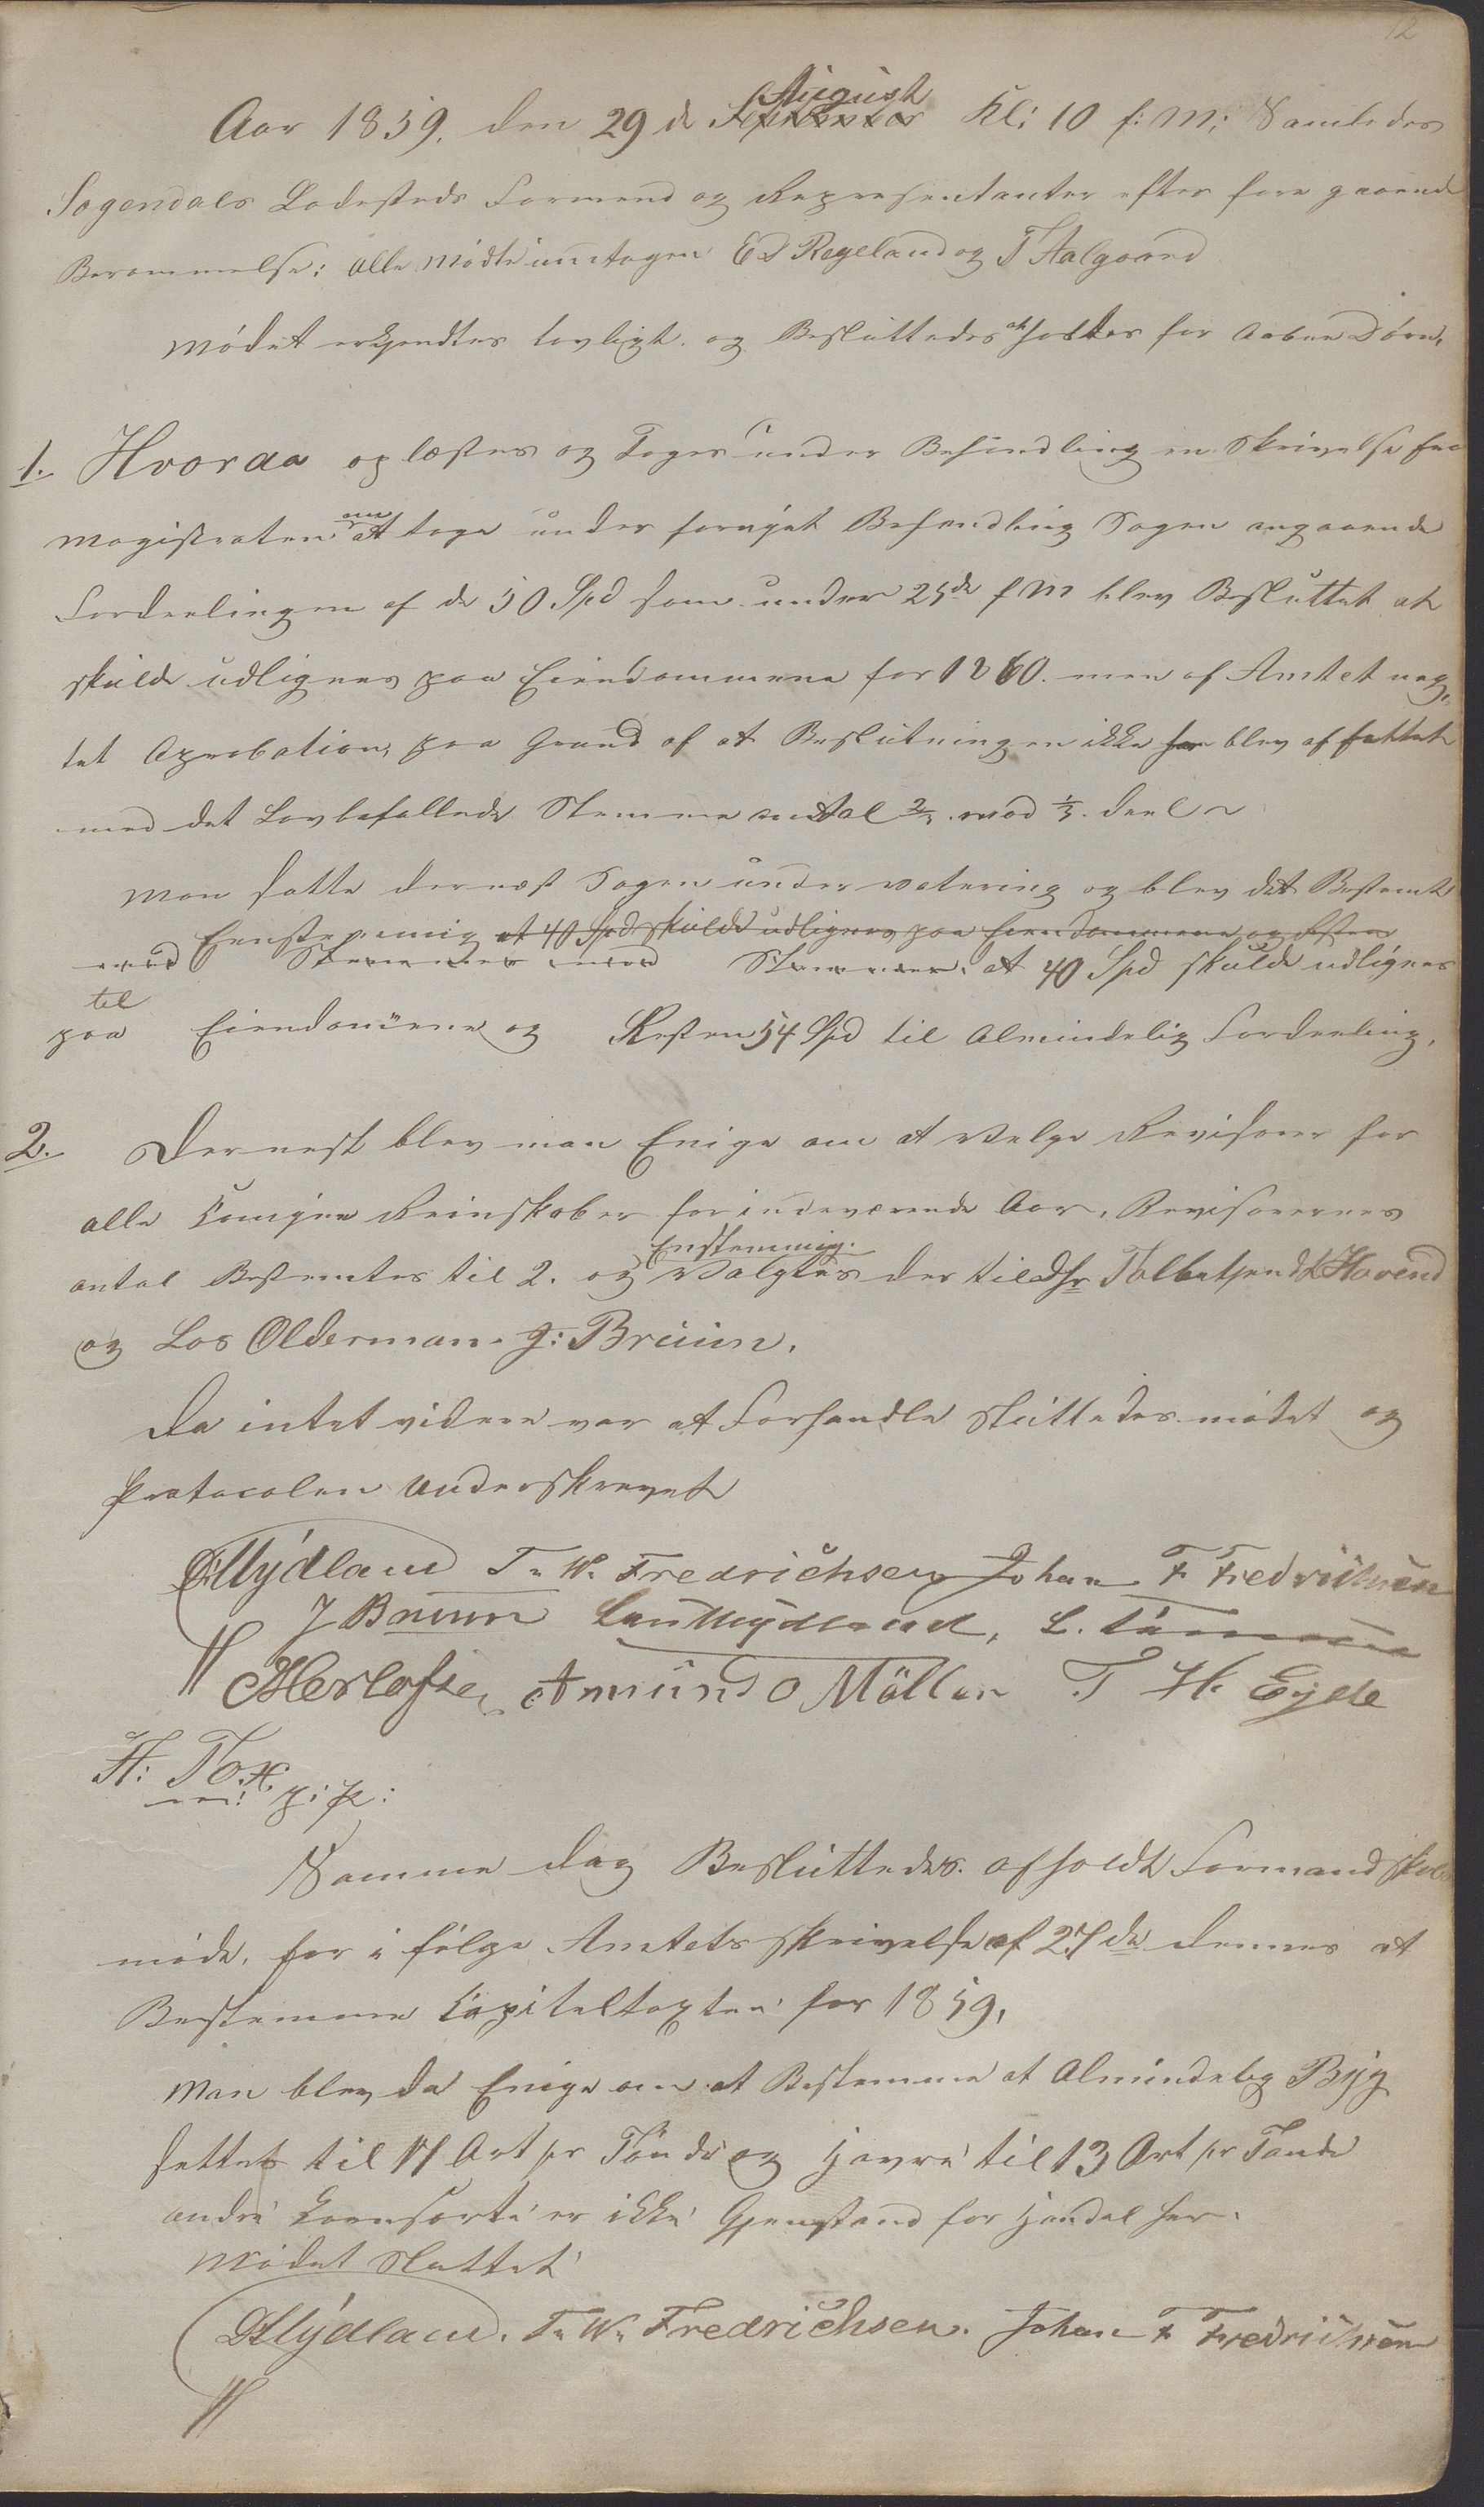 12
August
Aar 1859, den 29 de September Kl: 10 f: M: Samledes
Sogendals Ladesteds Formend og Representanter efter fore gaaende
Berammelse: alle mødte undtagen E S Regeland og T Aalgaard
Mødet erkjendtes lovligt og Besluttedes at holdes for aabne Døre.
1. Hvoraa oplæstes og Toges under Behandling en Skrivelse fra
Magistraten om at tage under fornyet Behandling Sagen angaaende
Fordeelingen af de 50 Spd som under 25de f M blev Besluttet at
skulde udlignes paa Eiendommene for 1860. men af Amtet neg,,
tet Aprobation, paa Grund af at Beslutningen ikke har blev affattet
med det Lovbefallede Stemme antal 2/3 mod 1/3 deel
Man satte dernæst Sagen under votering og blev det Bestemt
Eenstemmig at 40 Spd skulde udlignes paa Eiendommene og Resten
med Stemmer imod Stemmer. at 40 Spd skulde udlignes
til
paa Eiendomene og Resten 54 Spd til Almindelig Fordeeling.
2. Dernest blev man Enige om at Velge Revisorer for
alle Comgne Reinskaber for indeværende Aar, Revisorernes
Enstemmig.
antal Bestemtes til 2. og Valgtes der til Hr Tolbetjendt Hovend
og Los Olderman J: Bruun.
Da intet videre var at Forhandle sluttedes mødet og
Protocolen Underskrevet
Mydland T. W. Fredrichsen Johan F Fredrichsen
J Bruun Lau Mydland, L.
Herlofsen Amund O Möller T H. Eyde
H: Tox
m: p: p:
Samme dag Besluttedes. afholdt Formandskabs
møde. for i følge Amtets skrivelse af 27de dennes at
Bestemme Capiteltaxten for 1859,
Man blev da Enige om at Bestemme at Almindelig Byg
settes til 17 Ort pr Tønde og Havre til 13 Ort pr Tønde
andre Kornsorte er ikke Gjenstand for Handel her.
Mødet sluttet
Mydland. T. W. Fredrichsen. Johan F Fredrichsen